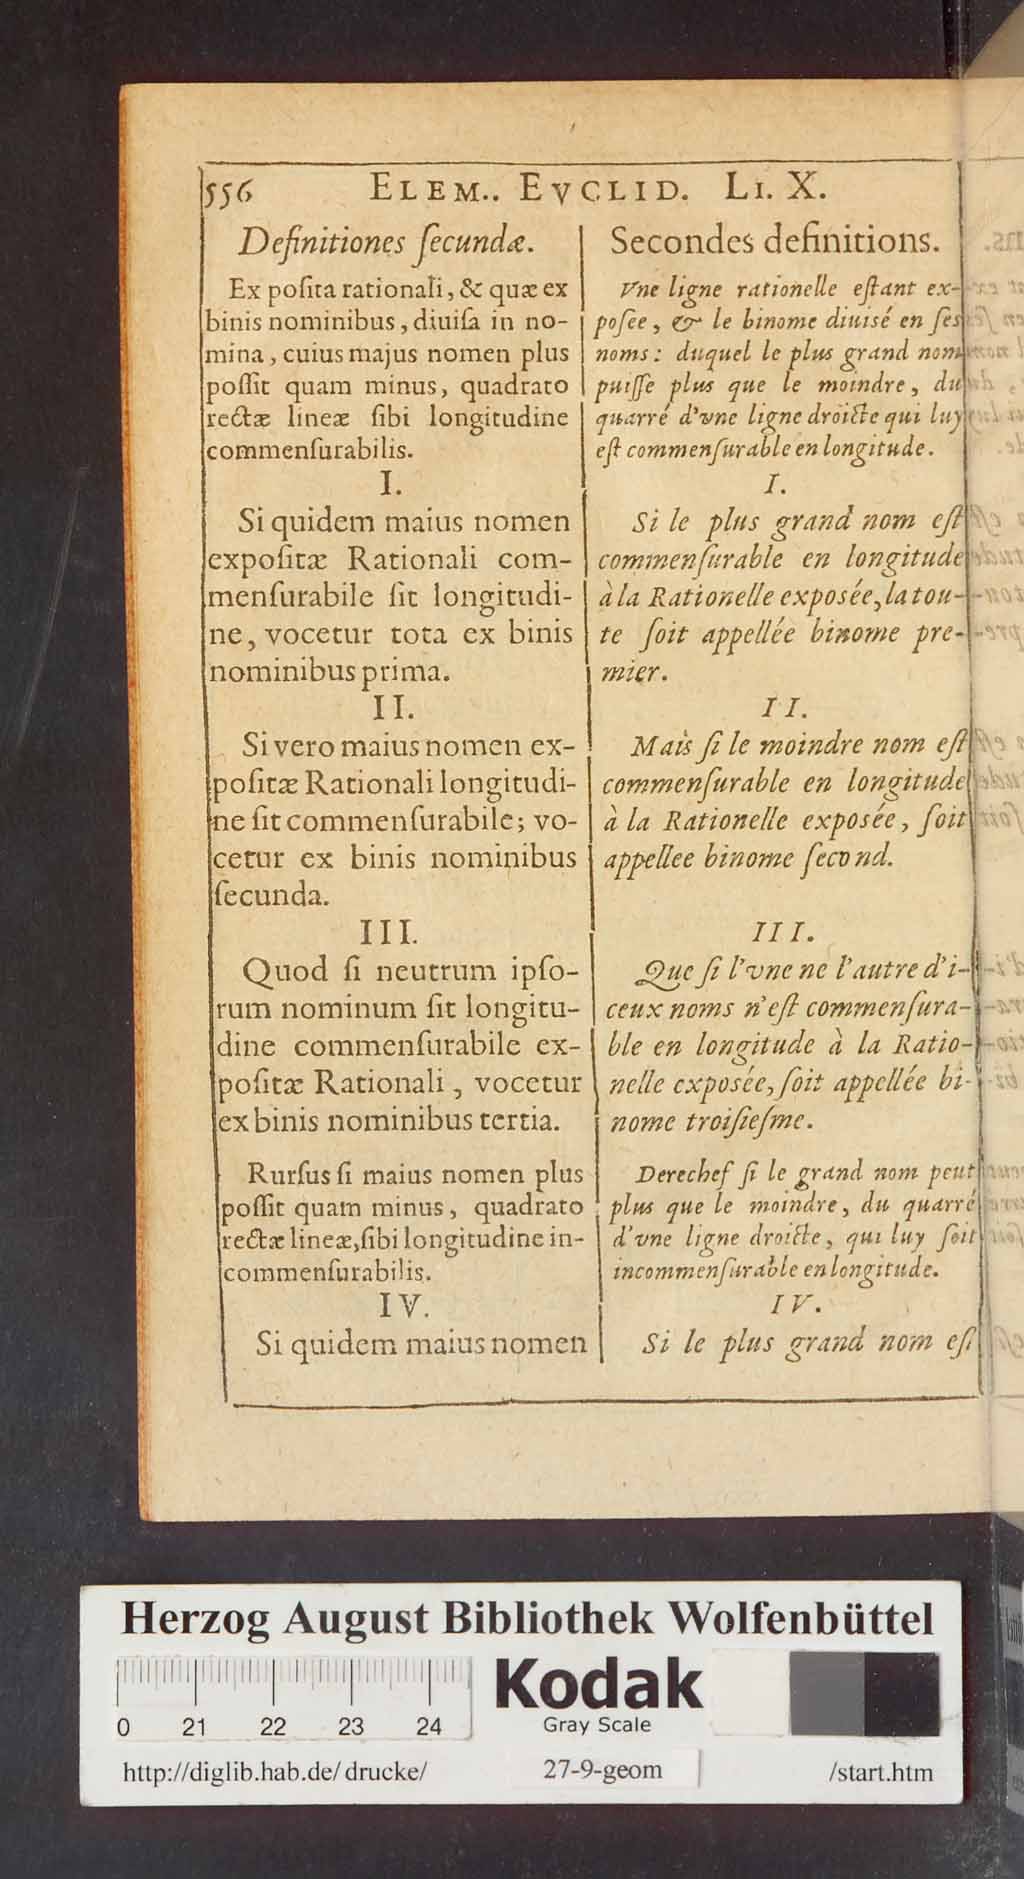 556 ELEM.. EVCLID. LI. X.
Definitiones ſecundæ.
Ex poſita rationali, & quæ ex
binis nominibus, diuiſa in no-
mina, cuius majus nomen plus
poſſit quam minus, quadrato
rectæ lineæ ſibi longitudine
commenſurabilis.
I.
Si quidem maius nomen
expoſitæ Rationali com-
menſurabile ſit longitudi-
ne, vocetur tota ex binis
nominibus prima.
II.
Si vero maius nomen ex-
poſitæ Rationali longitudi-
ne ſit commenſurabile; vo-
cetur ex binis nominibus
ſecunda.
III.
Quod ſi neutrum ipſo-
rum nominum ſit longitu-
dine commenſurabile ex-
poſitæ Rationali, vocetur
ex binis nominibus tertia.
Rurſus ſi maius nomen plus
poſſit quam minus, quadrato
rectæ lineæ, ſibi longitudine in-
commenſurabilis.
IV.
Si quidem maius nomen
Secondes definitions.
Vne ligne rationelle eſtant ex-
poſee, & le binome diuisé en ſes
noms: duquel le plus grand nom
puiſſe plus que le moindre, du
quarré d'vne ligne droicte qui luy
eſt commenſurable en longitude.
I.
Si le plus grand nom eſt
commenſurable en longitude
à la Rationelle exposée, la tou-
te ſoit appellée binome pre-
mier.
II.
Mais ſi le moindre nom eſt
commenſurable en longitude
à la Rationelle exposée, ſoit
appellee binome ſecond.
III.
Que ſi l'vne ne l'autre d'i-
ceux noms n'eſt commenſura-
ble en longitude à la Ratio-
nelle exposée, ſoit appellée bi-
nome troiſieſme.
Derechef ſi le grand nom peut
plus que le moindre, du quarré
d'vne ligne droicte, qui luy ſoit
incommenſurable en longitude.
IV.
Si le plus grand nom eſt
Herzog August Bibliothek Wolfenbüttel
0 21 22 23 24
Kodak
Gray Scale
http://diglib.hab.de/drucke/ 27-9-geom /start.htm